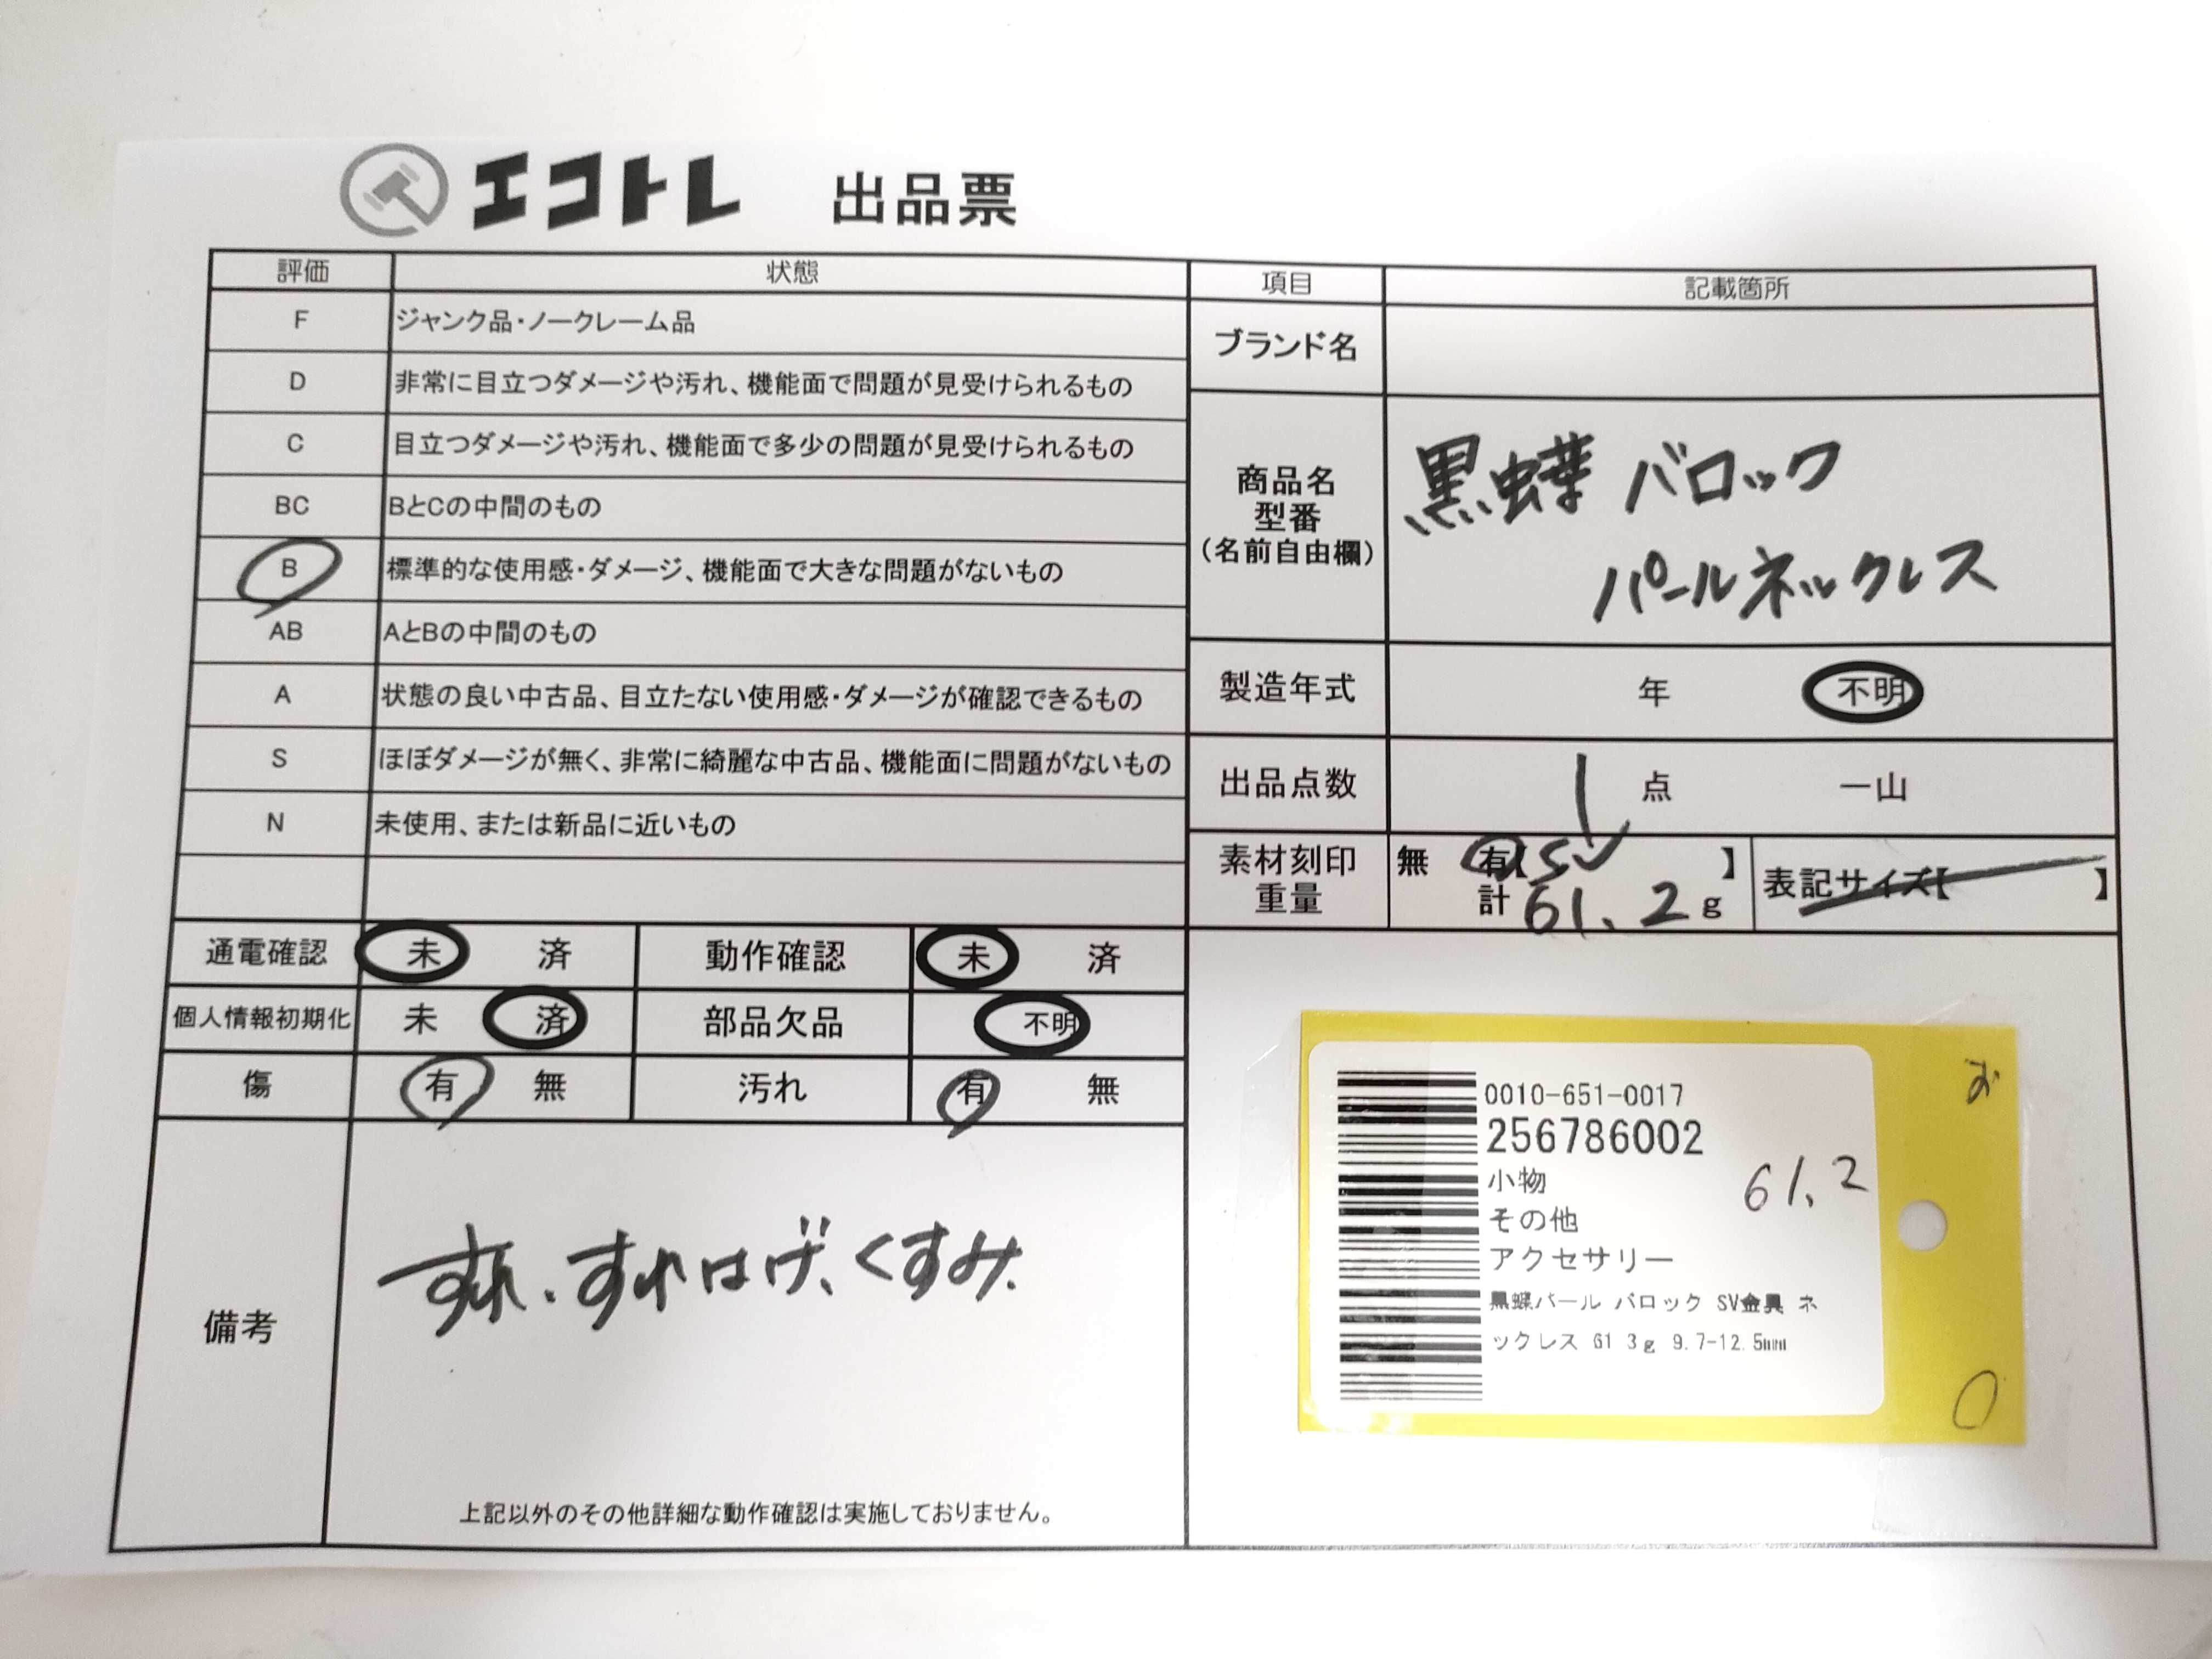 エコトレ 出品票
評価 状態
F ジャンク品・ノークレーム品
D 非常に目立つダメージや汚れ、機能面で問題が見受けられるもの
C 目立つダメージや汚れ、機能面で多少の問題が見受けられるもの
BC BとCの中間のもの
B 標準的な使用感・ダメージ、機能面で大きな問題がないもの
AB AとBの中間のもの
A 状態の良い中古品、目立たない使用感・ダメージが確認できるもの
S ほぼダメージが無く、非常に綺麗な中古品、機能面に問題がないもの
N 未使用、または新品に近いもの
通電確認 未 済 動作確認 未 済
個人情報初期化 未 済 部品欠品 不明
傷 有 無 汚れ 有 無
備考
すれ、すれはげ、くすみ.
上記以外のその他詳細な動作確認は実施しておりません。
項目 記載箇所
ブランド名
商品名
型番
(名前自由欄)
黒蝶 バロック
パールネックレス
製造年式 年 不明
出品点数 1 点 一山
素材刻印
重量
無 有【SV】
計 61.2g
表記サイズ【 】
0010-651-0017
256786002
小物
その他
アクセサリー
黒蝶パール バロック SV金具 ネ
ックレス 61 3g 9.7-12.5mm
61.2
お
0